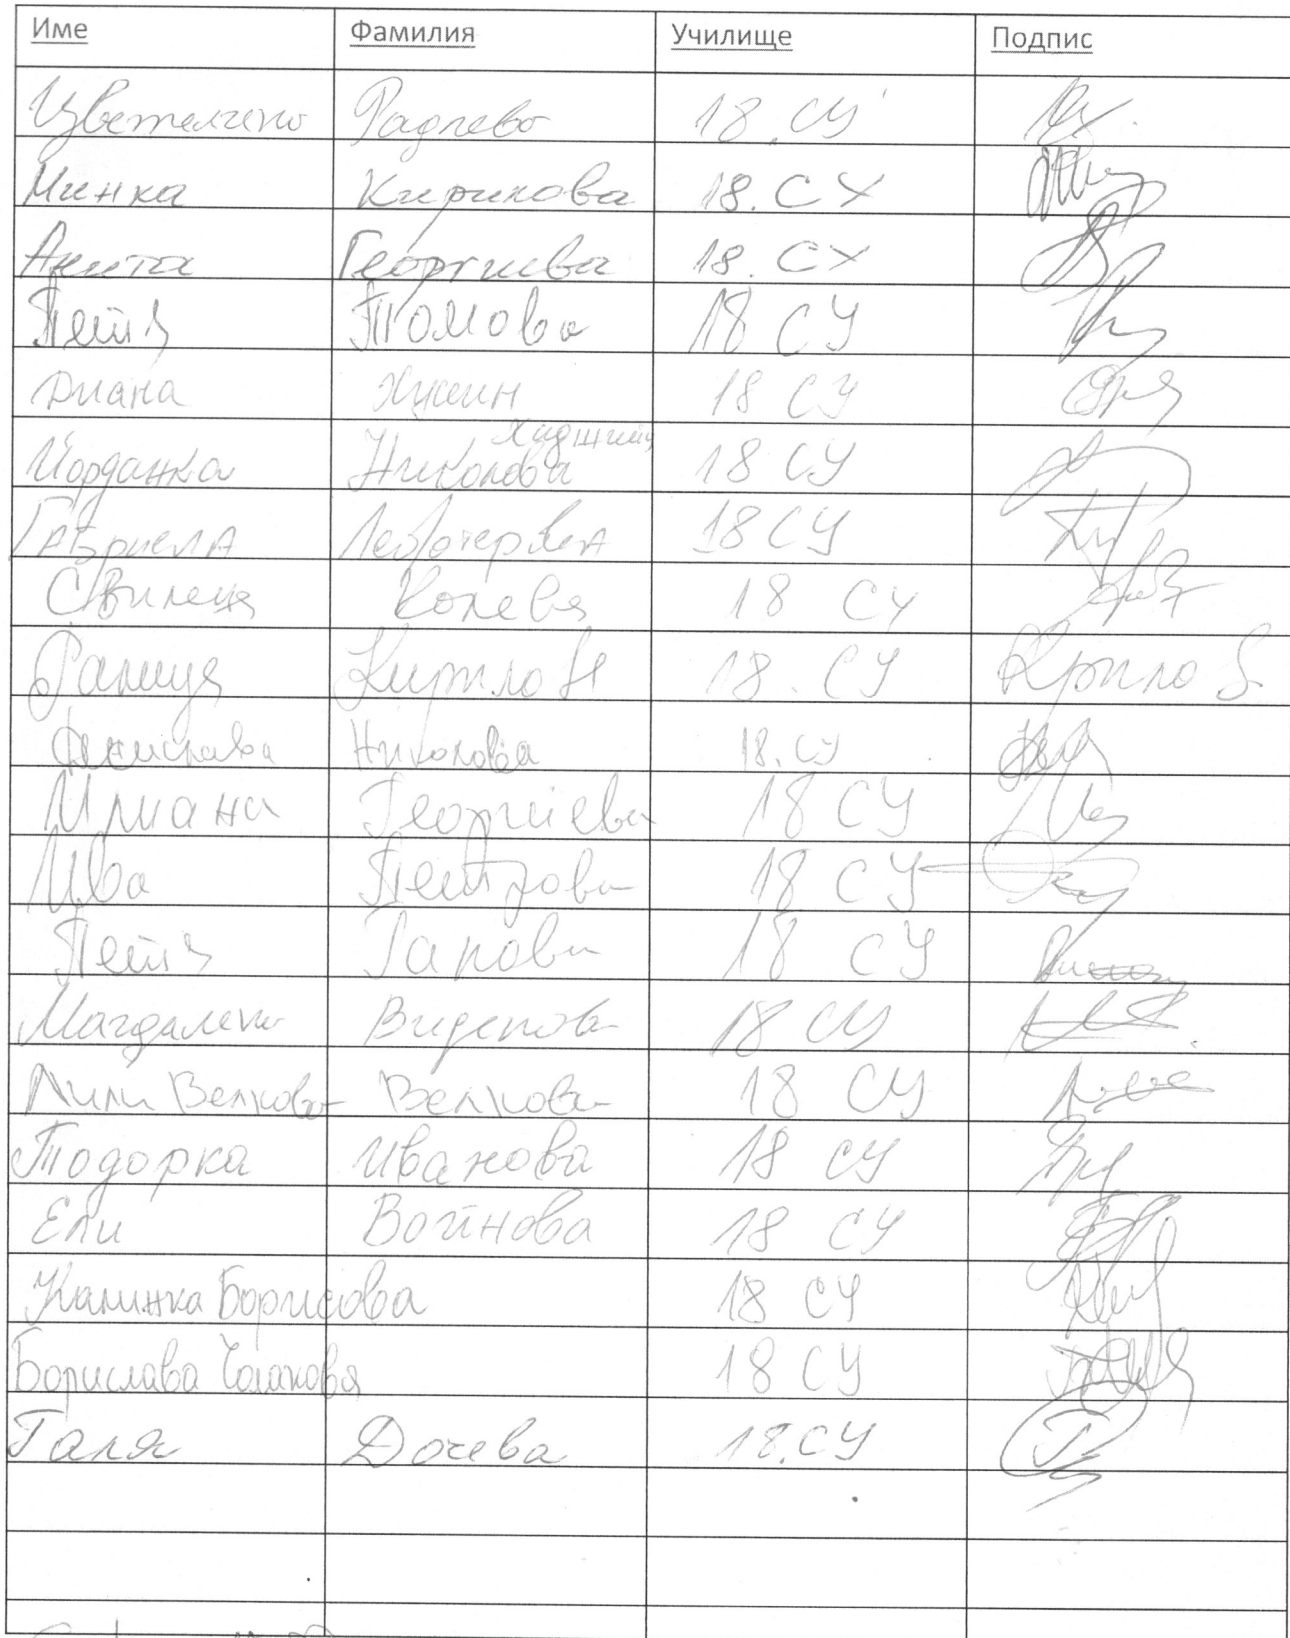 Име Фамилия Училище Подпис
Цветелина Радлева 18. СУ
Минка Кирилова 18. СУ
Анита Георгиева 18. СУ
Петя Томова 18 СУ
Диана 18 СУ
Йорданка Николова 18 СУ
Габриела 18 СУ
Колева 18 СУ
Ралица Кирилова 18. СУ
Денислава Николова 18. СУ
Илиана Георгиева 18 СУ
Ива Петрова 18 СУ
Петя 18 СУ
Магдалена Виденова 18 СУ
Лили Велкова Велкова 18 СУ
Тодорка Иванова 18 СУ
Ели Войнова 18 СУ
Калинка Борисова 18 СУ
Борислава Чолакова 18 СУ
Галя Дочева 18. СУ